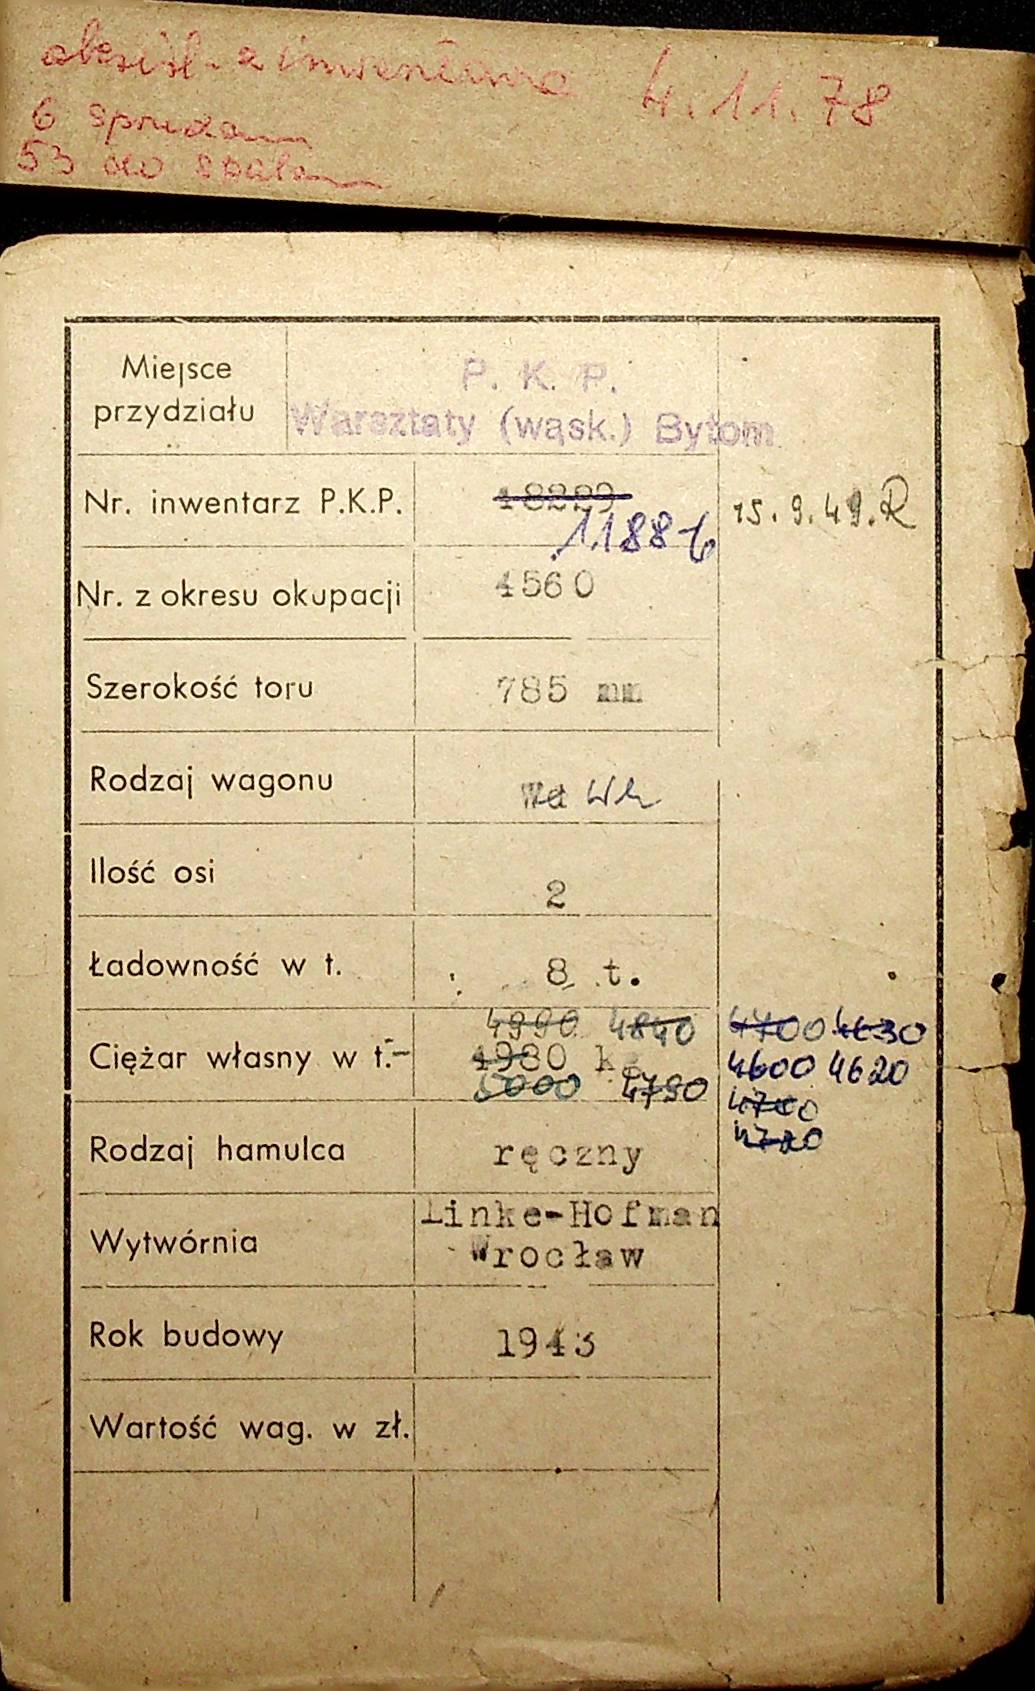 z inwentarza 4.11.78
6 sprzedam
53 do spalen
Miejsce przydziału
P. K. P.
Warsztaty (wąsk.) Bytom
Nr. inwentarz P.K.P. 18229 15.9.49.R
11886
Nr. z okresu okupacji 4560
Szerokość toru 785 mm
Rodzaj wagonu Wd Wh
Ilość osi 2
Ładowność w t. 8 t.
4990 4840 4700 4630
Ciężar własny w t.- 4980 kg 4600 4620
5000 4790 4700
4720
Rodzaj hamulca ręczny
Wytwórnia Linke-Hofman
Wrocław
Rok budowy 1943
Wartość wag. w zł.